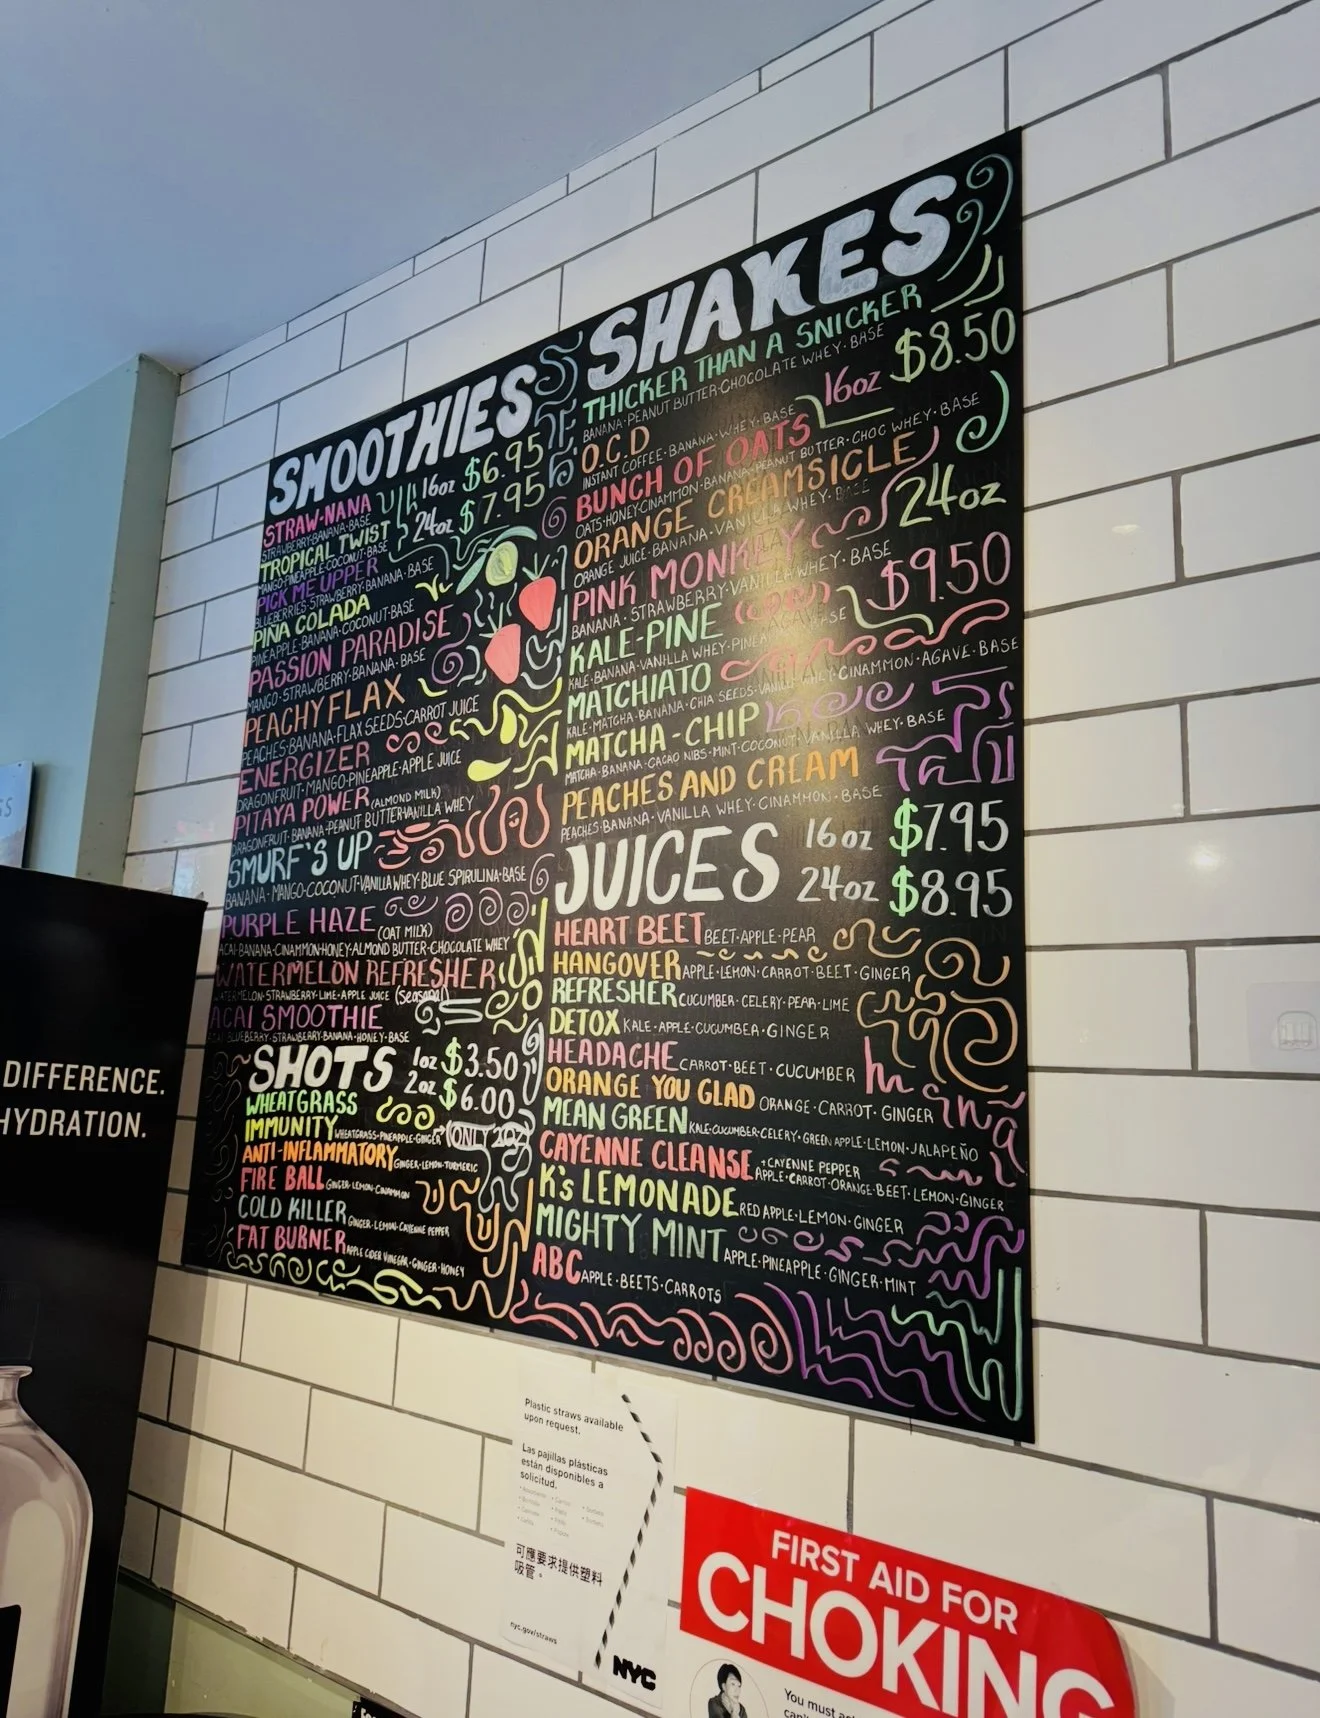 SMOOTHIES
16oz $6.95
24oz $7.95
STRAW-NANA
STRAWBERRY·BANANA·BASE
TROPICAL TWIST
MANGO·PINEAPPLE·COCONUT·BASE
PICK ME UPPER
BLUEBERRIES·STRAWBERRY·BANANA·BASE
PINA COLADA
PINEAPPLE·BANANA·COCONUT·BASE
PASSION PARADISE
MANGO·STRAWBERRY·BANANA·BASE
PEACHY FLAX
PEACHES·BANANA·FLAX SEEDS·CARROT JUICE
ENERGIZER
DRAGONFRUIT·MANGO·PINEAPPLE·APPLE JUICE
PITAYA POWER (ALMOND MILK)
DRAGONFRUIT·BANANA·PEANUT BUTTER·VANILLA WHEY
SMURF'S UP
BANANA·MANGO·COCONUT·VANILLA WHEY·BLUE SPIRULINA·BASE
PURPLE HAZE (OAT MILK)
ACAI·BANANA·CINAMMON·HONEY·ALMOND BUTTER·CHOCOLATE WHEY
WATERMELON REFRESHER
WATERMELON·STRAWBERRY·LIME·APPLE JUICE (Seasonal)
ACAI SMOOTHIE
BLUEBERRY·STRAWBERRY·BANANA·HONEY·BASE
SHOTS
1oz $3.50
2oz $6.00
WHEATGRASS
IMMUNITY WHEATGRASS·PINEAPPLE·GINGER (ONLY 2oz)
ANTI-INFLAMMATORY GINGER·LEMON·TURMERIC
FIRE BALL GINGER·LEMON·CINAMMON
COLD KILLER GINGER·LEMON·CAYENNE PEPPER
FAT BURNER APPLE CIDER VINEGAR·GINGER·HONEY
SHAKES
THICKER THAN A SNICKER
BANANA·PEANUT BUTTER·CHOCOLATE WHEY·BASE
16oz $8.50
O.C.D
INSTANT COFFEE·BANANA·WHEY·BASE
BUNCH OF OATS
OATS·HONEY·CINAMMON·BANANA·PEANUT BUTTER·CHOC WHEY·BASE
ORANGE CREAMSICLE
ORANGE JUICE·BANANA·VANILLA WHEY·BASE
24oz
$9.50
PINK MONKEY
BANANA·STRAWBERRY·VANILLA WHEY·BASE
KALE-PINE
KALE·BANANA·VANILLA WHEY·PINEAPPLE AGAVE·BASE
MATCHIATO
KALE·MATCHA·BANANA·CHIA SEEDS·VANILLA WHEY·CINAMMON·AGAVE·BASE
MATCHA-CHIP
MATCHA·BANANA·CACAO NIBS·MINT·COCONUT·VANILLA WHEY·BASE
PEACHES AND CREAM
PEACHES·BANANA·VANILLA WHEY·CINAMMON·BASE
JUICES
16oz $7.95
24oz $8.95
HEART BEET BEET·APPLE·PEAR
HANGOVER APPLE·LEMON·CARROT·BEET·GINGER
REFRESHER CUCUMBER·CELERY·PEAR·LIME
DETOX KALE·APPLE·CUCUMBER·GINGER
HEADACHE CARROT·BEET·CUCUMBER
ORANGE YOU GLAD ORANGE·CARROT·GINGER
MEAN GREEN KALE·CUCUMBER·CELERY·GREEN APPLE·LEMON·JALAPEÑO
CAYENNE CLEANSE +CAYENNE PEPPER
APPLE·CARROT·ORANGE·BEET·LEMON·GINGER
K's LEMONADE RED APPLE·LEMON·GINGER
MIGHTY MINT APPLE·PINEAPPLE·GINGER·MINT
ABC APPLE·BEETS·CARROTS
DIFFERENCE.
HYDRATION.
Plastic straws available
upon request.
Las pajillas plásticas
están disponibles a
solicitud.
可應要求提供塑料
吸管。
nyc.gov/straws
NYC
FIRST AID FOR
CHOKING
You must